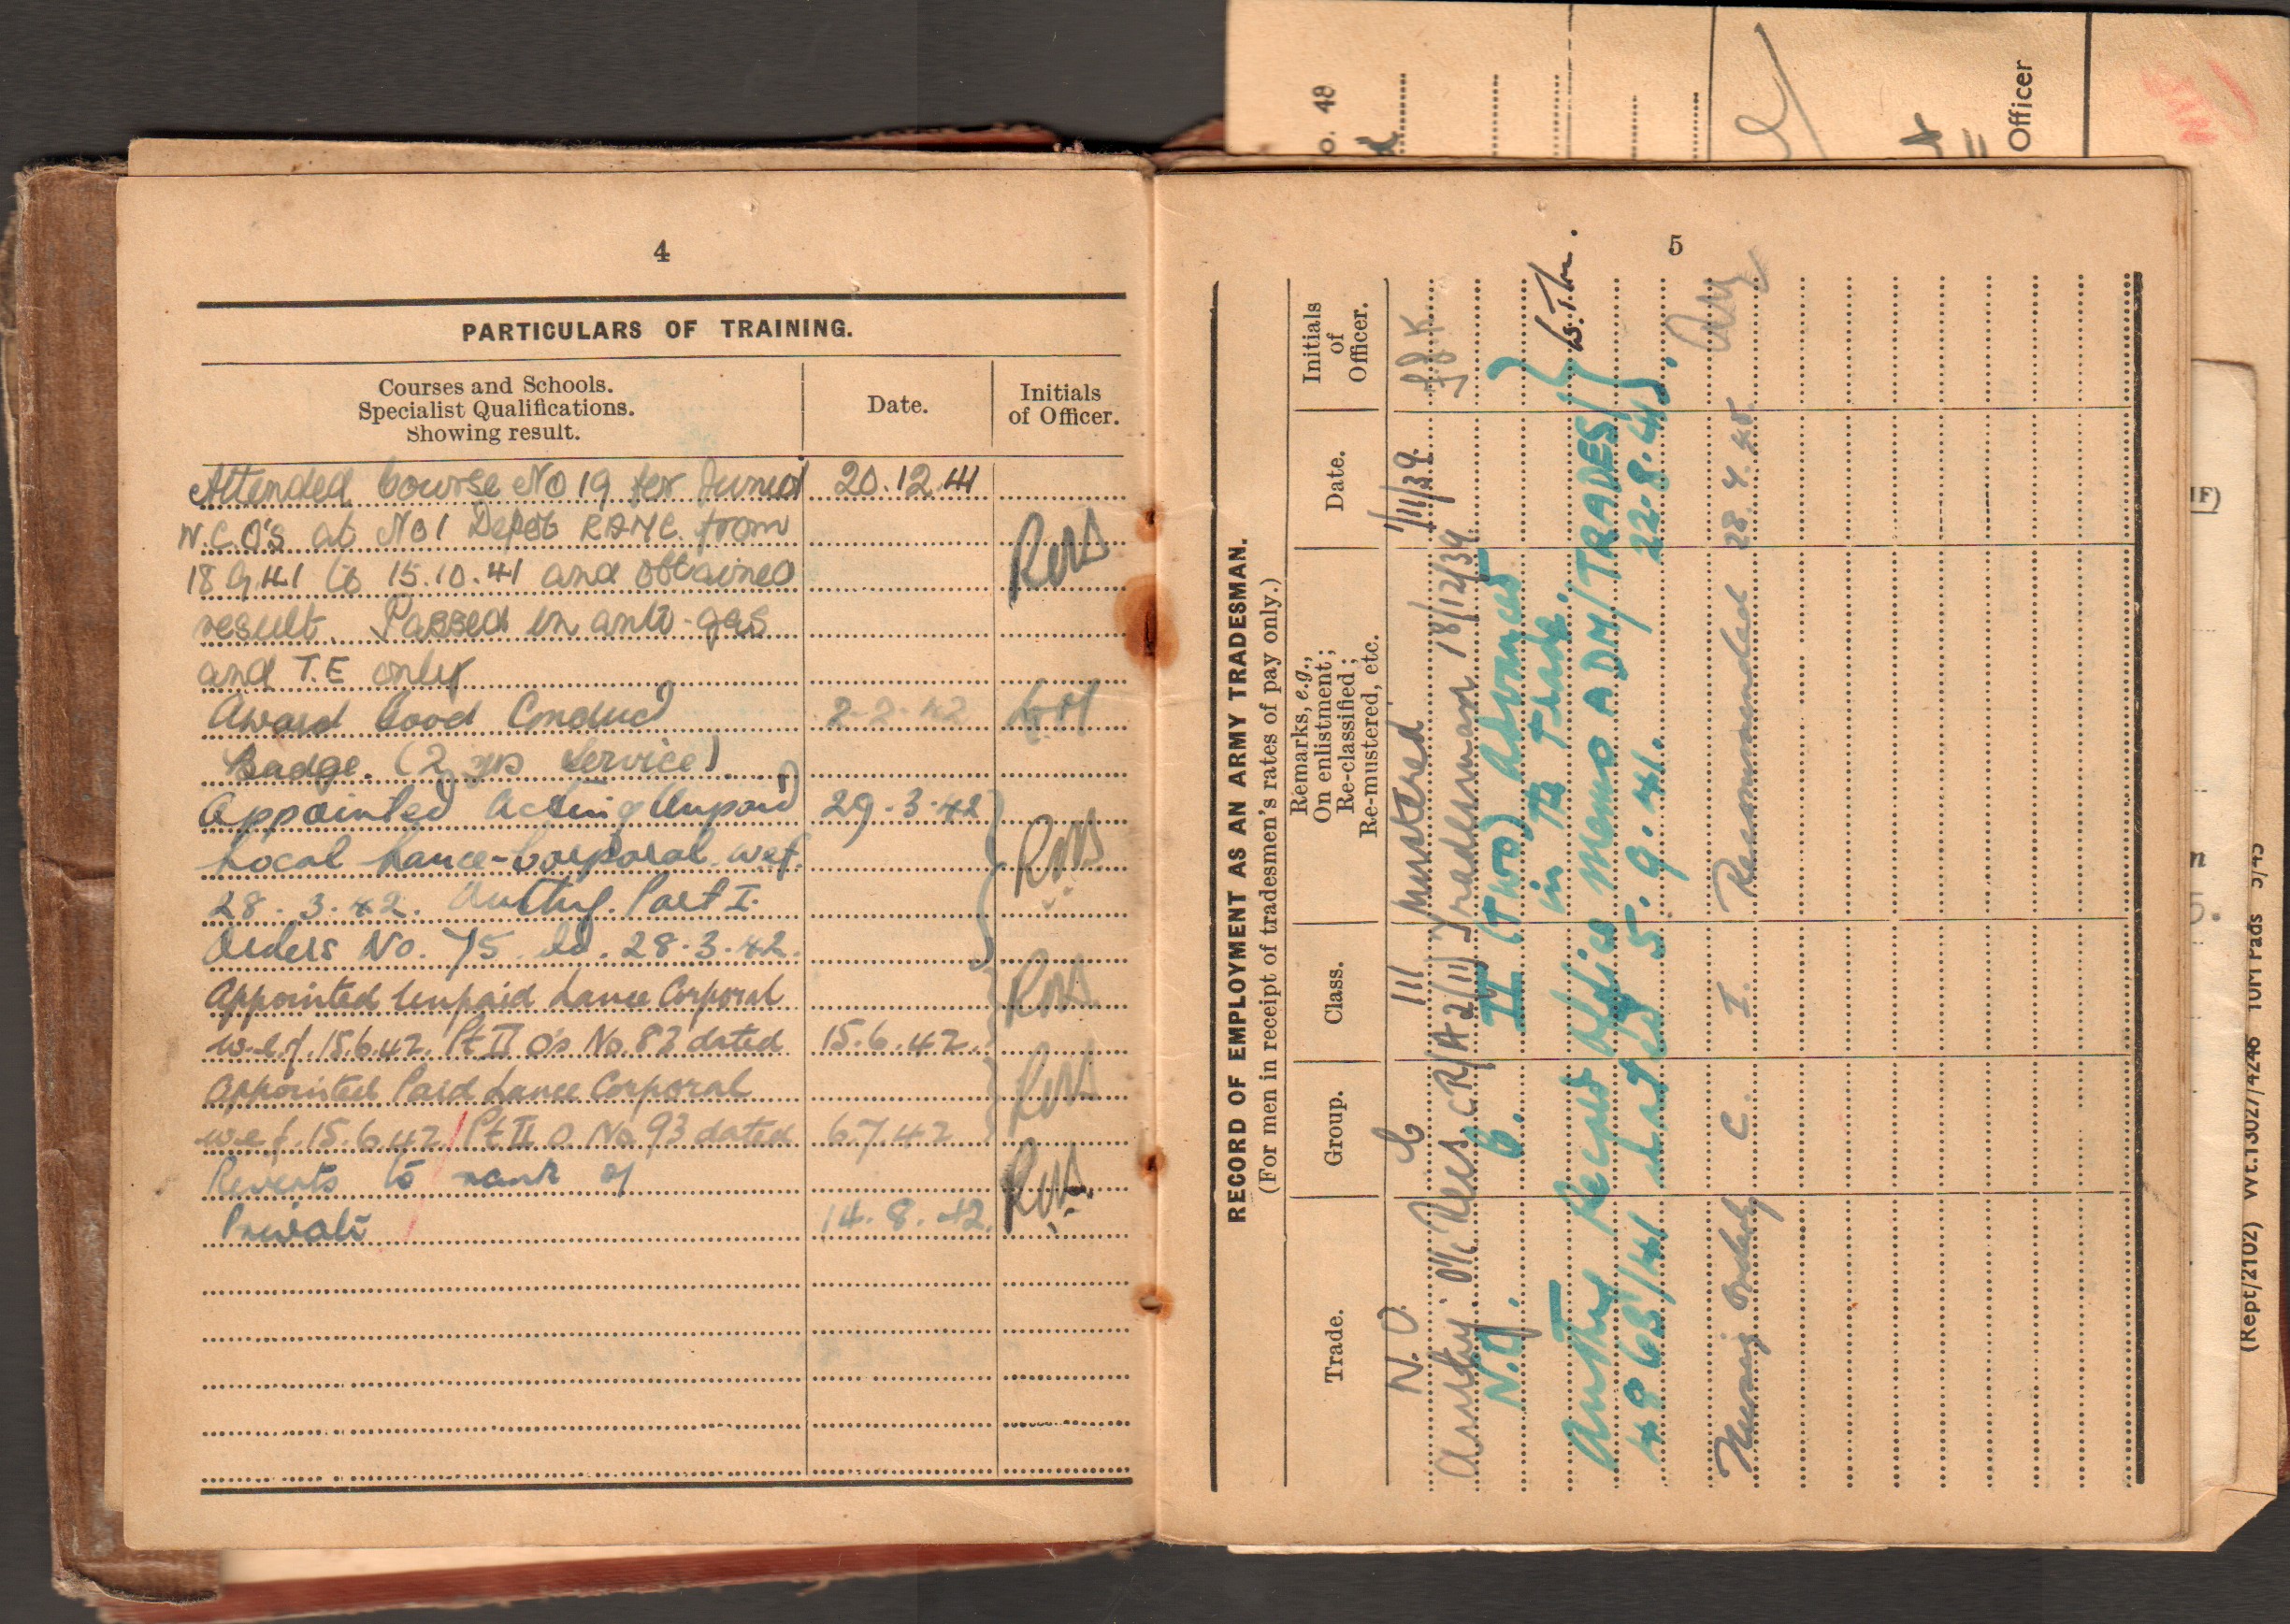 4
PARTICULARS OF TRAINING.
Courses and Schools.
Specialist Qualifications.
Showing result.
Date.
Initials
of Officer.
Attended Course No 19 for Junior 20.12.41
N.C.O's at No 1 Depôt RAMC. from
18.9.41 to 15.10.41 and obtained
result. Passed in anti-gas
and T.E only
Award Good Conduct 2-2-42
Badge. (2 yrs Service)
Appointed Acting Unpaid 29.3.42
Local Lance-Corporal w.e.f.
28.3.42. Authy. Part I.
Orders No. 75 dd. 28.3.42.
Appointed Unpaid Lance Corporal
w.e.f. 15.6.42. Pt II O's No. 83 dated 15.6.42.
Appointed Paid Lance Corporal
w.e.f. 15.6.42 Pt II O No 93 dated 6.7.42
Reverts to rank of
Private 14.8.42.
5
RECORD OF EMPLOYMENT AS AN ARMY TRADESMAN.
(For men in receipt of tradesmen's rates of pay only.)
Trade.
Group.
Class.
Remarks, e.g.,
On enlistment;
Re-classified;
Re-mustered, etc.
Date.
Initials
of
Officer.
N.O. C III Mustered 1/11/39
Authy: O i/c Recs. CR/A2/11 Tradesman 18/12/39
N.O. C. II (Two) Advanced
in Td Trade.
Authy Records Office Memo ADM/TRADES/
4968/41 dated 5.9.41. 22.9.41.
Nursing Orderly C. I. Recommended 28.4.45.
o. 48
Officer
IF)
(Rept/2102) Wt.13027/4246 10M Pads 5/45